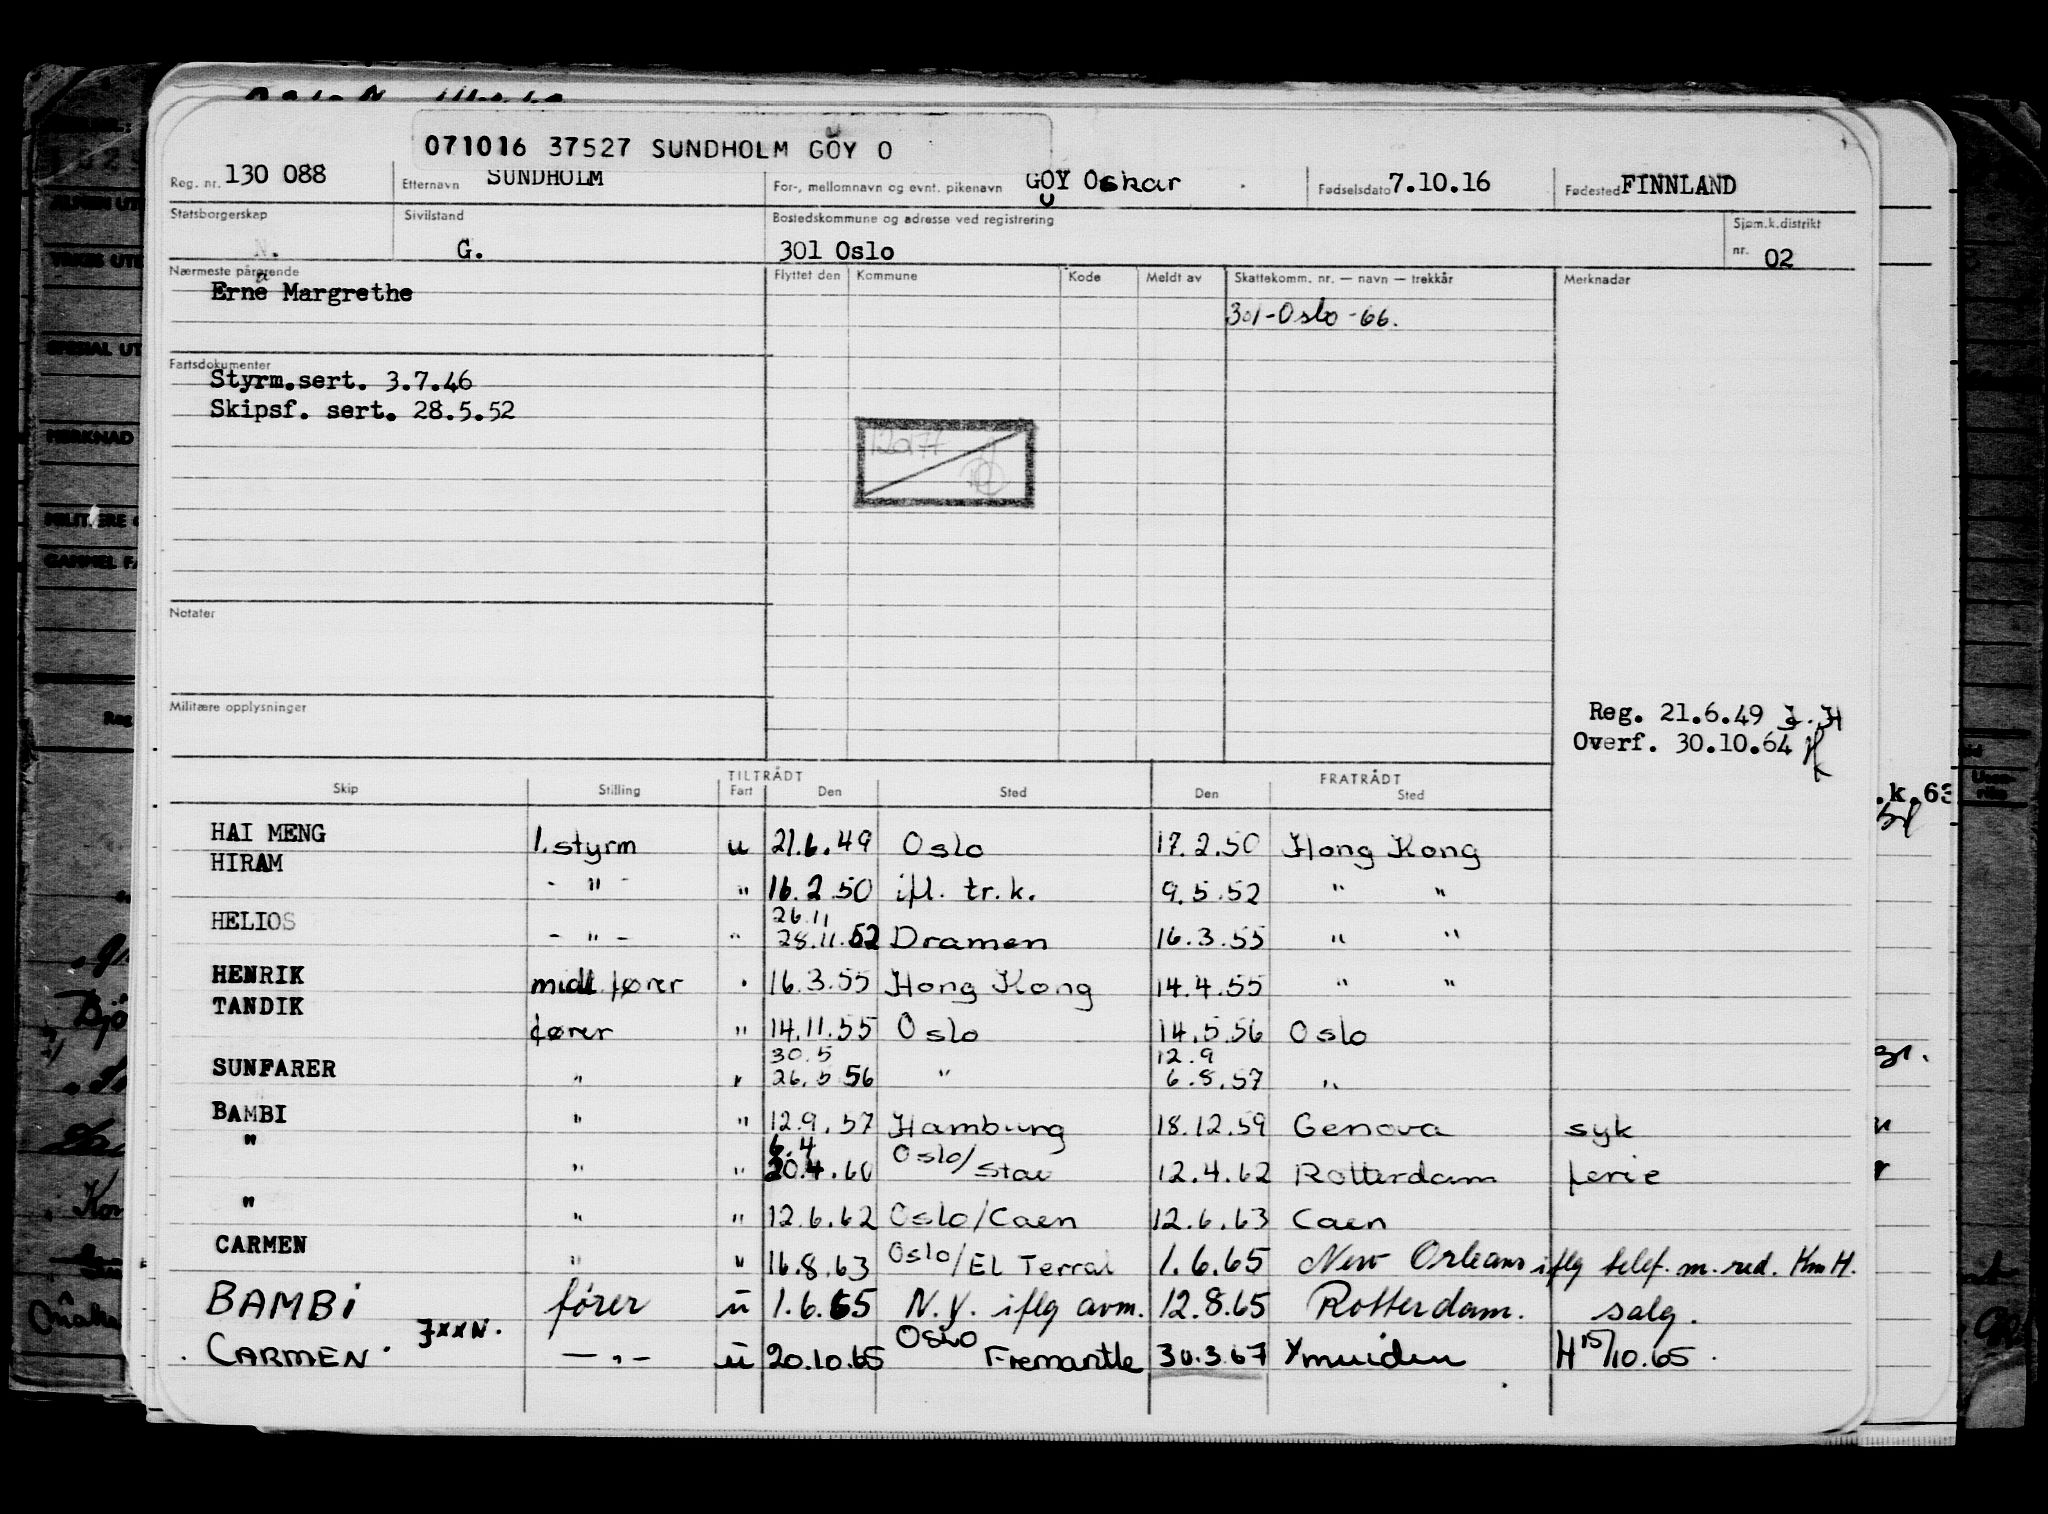 071016 37527 SUNDHOLM GÖY O
Reg. nr. 130 088 Etternavn SUNDHOLM For-, mellomnavn og evnt. pikenavn GÖY Oskar Fødselsdato 7.10.16 Fødested FINNLAND
Statsborgerskap Sivilstand Bostedskommune og adresse ved registrering Sjøm.k.distrikt
N. G. 301 Oslo nr. 02
Nærmeste pårørende Flyttet den Kommune Kode Meldt av Skattekomm. nr. — navn — trekkår Merknader
Erna Margrethe
301-Oslo-66.
Fartsdokumenter
Styrm.sert. 3.7.46
Skipsf. sert. 28.5.52
Notater
Militære opplysninger
Reg. 21.6.49
Overf. 30.10.64
TILTRÅDT FRATRÅDT
Skip Stilling Fart Den Sted Den Sted
HAI MENG 1.styrm u 21.6.49 Oslo 17.2.50 Hong Kong
HIRAM - " - " 16.2.50 ifl. tr.k. 9.5.52 " "
26.11
HELIOS - " - " 28.11.52 Dramen 16.3.55 " "
HENRIK midl. fører " 16.3.55 Hong Kong 14.4.55 " "
TANDIK fører " 14.11.55 Oslo 14.5.56 Oslo
30.5 12.9
SUNFARER " " 26.5.56 " 6.8.57 "
BAMBI " " 12.9.57 Hamburg 18.12.59 Genova syk
6.4
" " " 20.4.60 Oslo/Stav 12.4.62 Rotterdam ferie
" " " 12.6.62 Oslo/Caen 12.6.63 Caen
CARMEN " " 16.8.63 Oslo/El Terral 1.6.65 New Orleans iflg telef. m. red. Km H.
BAMBI fører u 1.6.65 N.Y. iflg avm. 12.8.65 Rotterdam. salg.
CARMEN JXXN. - " - u 20.10.65 Oslo Fremantle 30.3.67 Ymuiden H 15/10.65.